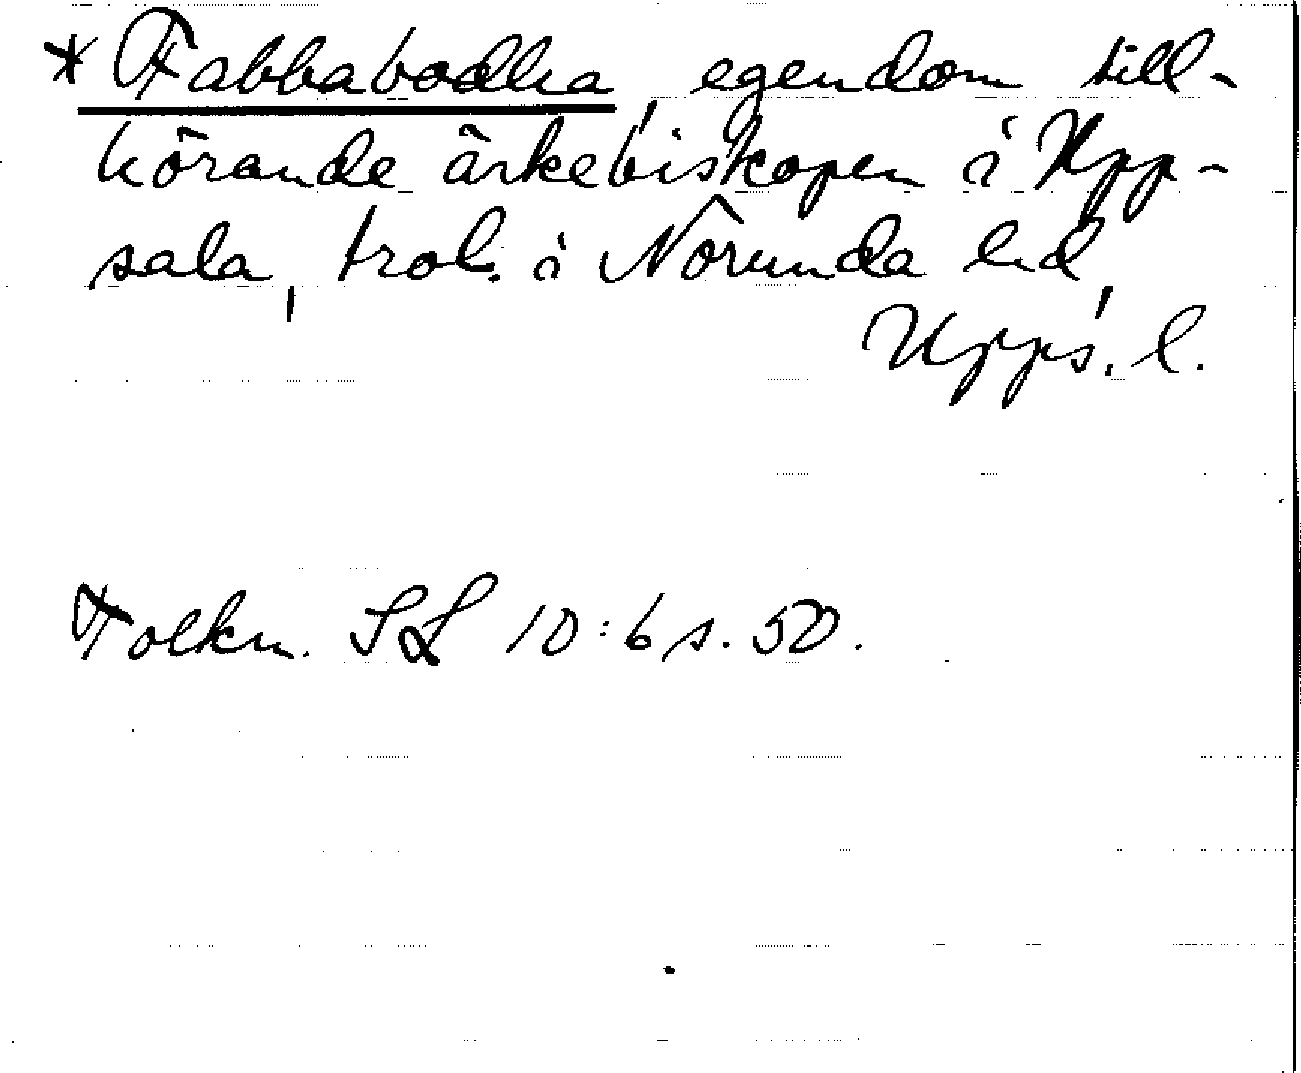 * Fabbabodha, egendom till-
hörande ärkebiskopen i Upp-
sala, trol. i Norunda hd,
Upps. l.
Tolkn. SL 10:6 s. 50.